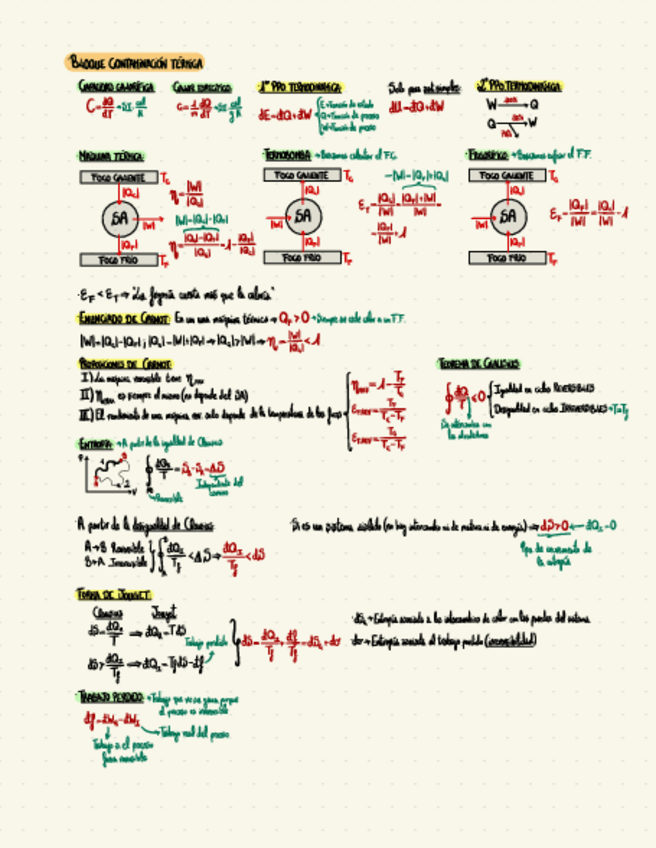 BLOQUE CONTAMINACIÓN TÉRMICA
CAPACIDAD CALORÍFICA
C = dQ/dT → SI: cal/K
CALOR ESPECÍFICO
C = 1/m dQ/dT → SI: cal/g K
1er PPO TERMODINÁMICA
dE = dQ + dW
E → Función de estado
Q → Función de proceso
W → Función de proceso
Solo para
dU = dQ + dW
2º PPO TERMODINÁMICA
W → Q
Q → W
MÁQUINA TÉRMICA
FOCO CALIENTE Tc
|Qc|
SA
|W|
|QF|
FOCO FRÍO TF
η = |W|/|Qc|
|W| = |Qc| - |QF|
η = |Qc| - |QF| / |Qc| = 1 - |QF|/|Qc|
TERMOBOMBA → Buscamos calentar el F.C.
FOCO CALIENTE Tc
|Qc|
SA
|W|
|QF|
FOCO FRÍO TF
-|W| = |QF| + |Qc|
ET = |Qc|/|W| = |QF| + |W| / |W| =
= |QF|/|W| + 1
FRIGORÍFICO → Buscamos enfriar el F.F.
FOCO CALIENTE Tc
|Qc|
SA
|W|
|QF|
FOCO FRÍO TF
EF = |QF|/|W| = |Qc|/|W| - 1
· EF < ET → "La frigoría cuesta más que la caloría"
ENUNCIADO DE CARNOT: En una máquina térmica → QF > 0 → Siempre se cede calor a un F.F.
|W| = |Qc| - |QF| ; |Qc| = |W| + |QF| → |Qc| > |W| → η = |W|/|Qc| < 1
PROPOSICIONES DE CARNOT:
I) La máquina reversible tiene η
II) η es siempre el mismo (no depende del SA)
III) El rendimiento de una máquina rev. solo depende de la temperatura de los focos
η = 1 - TF/Tc
EF,REV = TF / Tc - TF
ET,REV = Tc / Tc - TF
TEOREMA DE CLAUSIUS
∮ dQ/T ≤ 0
Igualdad en ciclos REVERSIBLES
Desigualdad en ciclos IRREVERSIBLES → T = Tf
ENTROPÍA → A partir de la igualdad de Clausius
P
V
∫ dQ/T = S - S = ΔS
Reversible
Independiente del camino
· A partir de la desigualdad de Clausius
A → B Reversible
B → A Irreversible
∫ dQI/Tf < ΔS ⇒ dQI/Tf < dS
· Si es un sistema aislado (no hay intercambio ni de materia ni de energía) ⇒ dS > 0 ← dQI = 0
Ppo de incremento de
la entropía
FORMA DE JOUGUET:
Clausius
Jouguet
dS = dQR/T ⇒ dQR = TdS
dS > dQI/Tf ⇒ dQI = TfdS - df
Trabajo perdido
dS = dQI/Tf + df/Tf = dSe + dσ
· dSe → Entropía asociada a los intercambios de calor con las paredes del sistema
· dσ → Entropía asociada al trabajo perdido (irreversibilidad)
TRABAJO PERDIDO → Trabajo que no se gana porque
el proceso es irreversible
df = dWR - dWI
→ Trabajo real del proceso
Trabajo si el proceso
fuera reversible